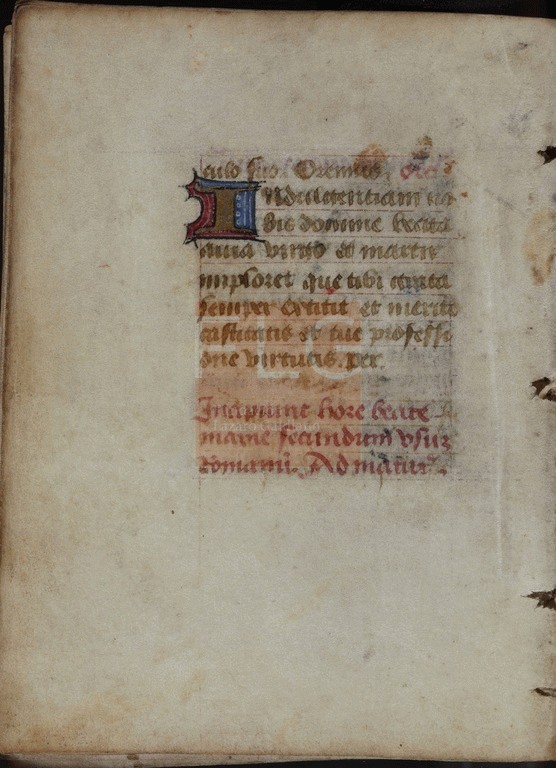 culo suo. Oremus. Orō
Indulgentiam no
bis domine beata
anna virgo et martir
imploret que tibi grata
semper extitit et merito
castitatis et tue professi
one virtutis. per.
Incipiunt hore beate
marie secundum vsum
romanū. Ad matut